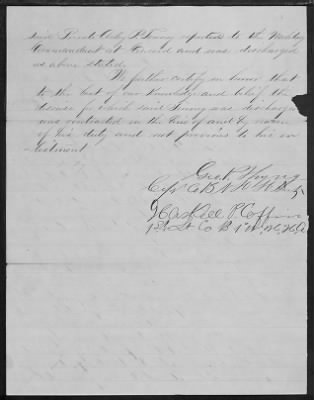 said Private Asby P. reported to the
Commandant at and was discharged
as above stated.
We further certify on honor that
to the best of our knowledge and belief the
disease for which said was discharged
was contracted in the line of and by reason
of his duty and not previous to his en
listment
Geo. R.
Capt Co B 1
Haskell P. Coffin
1st Lt Co B 1st H. A.